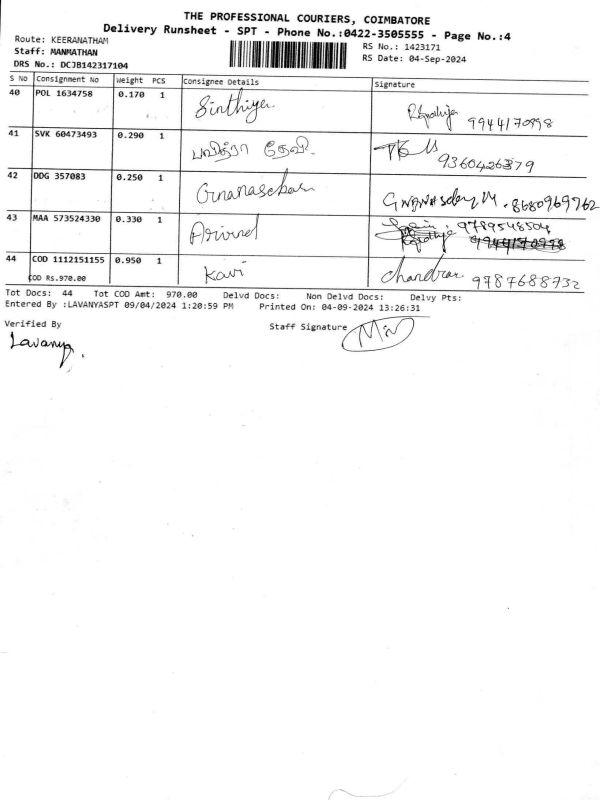 THE PROFESSIONAL COURIERS, COIMBATORE
Delivery Runsheet - SPT - Phone No.:0422-3505555 - Page No.:4
Route: KEERANATHAM
RS No.: 1423171
Staff: MANMATHAN
RS Date: 04-Sep-2024
DRS No.: DCJB142317104
S No Consignment No Weight PCS Consignee Details Signature
40 POL 1634758 0.170 1 Sinthiya 9944170898
41 SVK 60473493 0.290 1 பவித்ரா தேவி.
42 DDG 357083 0.250 1 Gnanasekar 8680969762
43 MAA 573524330 0.330 1 Arivind 9789548504
44 COD 1112151155 0.950 1 Kavi Chandran 9787688732
COD Rs.970.00
Tot Docs: 44 Tot COD Amt: 970.00 Delvd Docs: Non Delvd Docs: Delvy Pts:
Entered By :LAVANYASPT 09/04/2024 1:20:59 PM Printed On: 04-09-2024 13:26:31
Verified By Staff Signature
Lavanya.